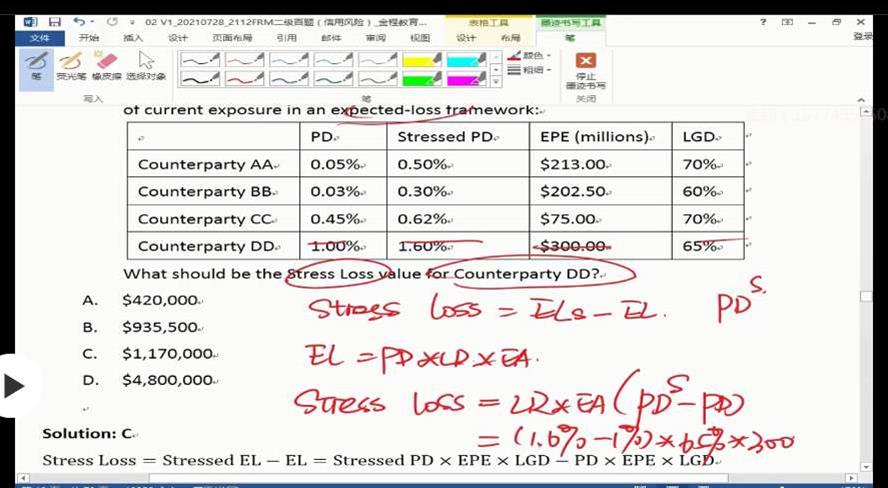 02 V1_20210728_2112FRM二级百题（信用风险）_金程教育...
表格工具 墨迹书写工具
文件 开始 插入 设计 页面布局 引用 邮件 审阅 视图 设计 布局 笔 登录
笔 荧光笔 橡皮擦 选择对象 颜色 粗细 停止墨迹书写
写入 笔 关闭
of current exposure in an expected-loss framework:
PD Stressed PD EPE (millions) LGD
Counterparty AA 0.05% 0.50% $213.00 70%
Counterparty BB 0.03% 0.30% $202.50 60%
Counterparty CC 0.45% 0.62% $75.00 70%
Counterparty DD 1.00% 1.60% $300.00 65%
What should be the Stress Loss value for Counterparty DD?
A. $420,000
B. $935,500
C. $1,170,000
D. $4,800,000
Stress loss = ELs - EL. PD^S.
EL = PD×LR×EA.
Stress loss = LR×EA(PD^S - PD)
= (1.6% - 1%)×65%×300
Solution: C
Stress Loss = Stressed EL − EL = Stressed PD × EPE × LGD − PD × EPE × LGD